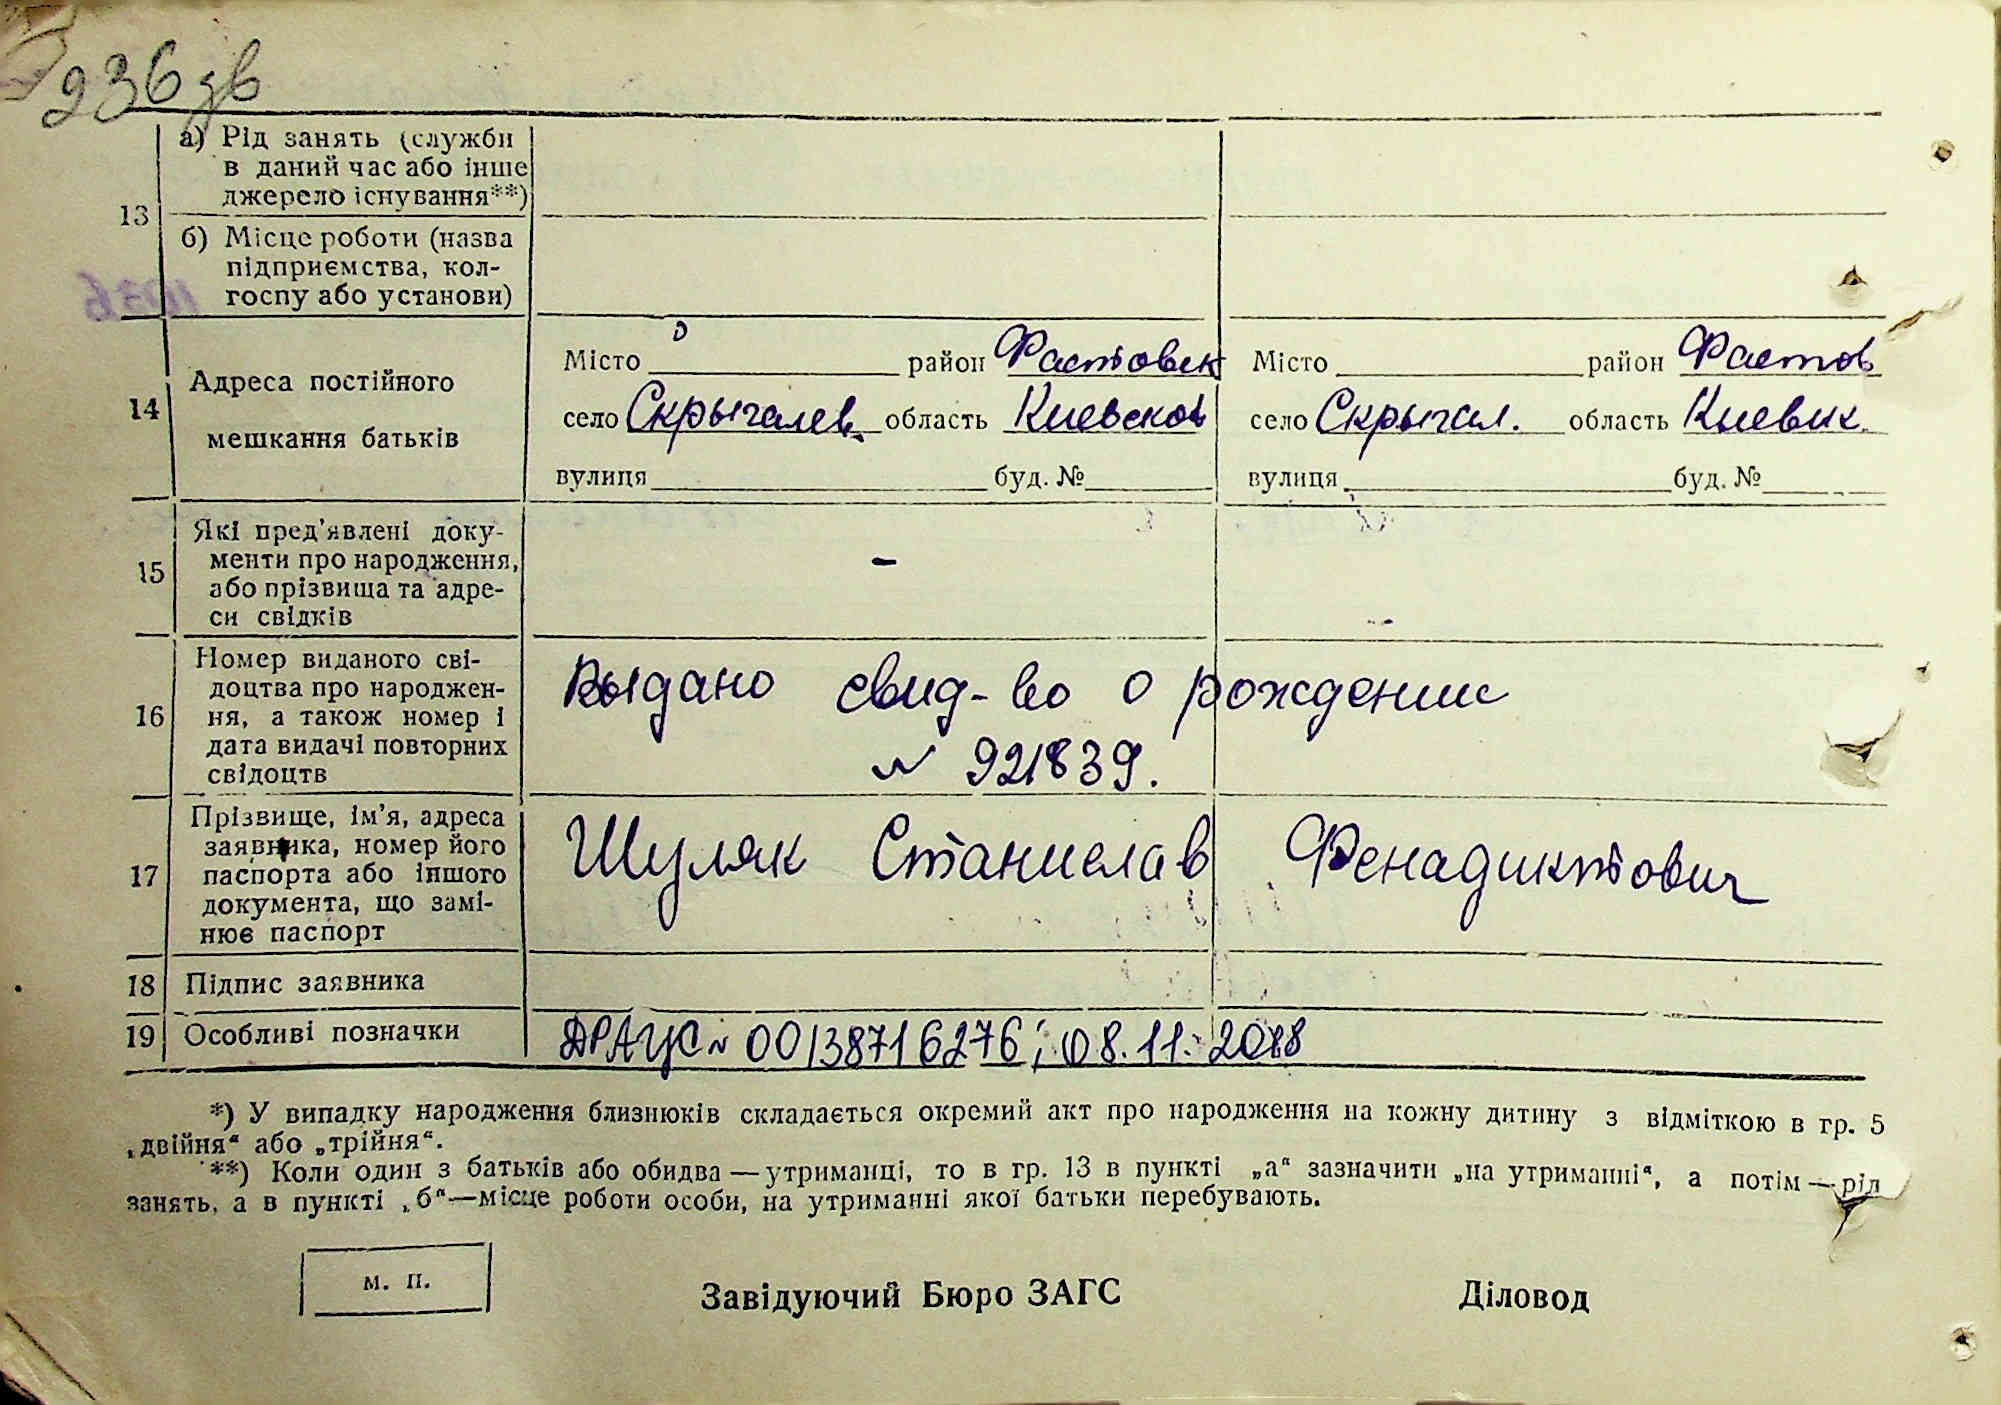 236 зв
13
а) Рід занять (служби
в даний час або інше
джерело існування**)
б) Місце роботи (назва
підприємства, кол-
госпу або установи)
14
Адреса постійного
мешкання батьків
Місто район Фастовск
село Скрыгалев. область Киевской
вулиця буд. №
Місто район Фастов
село Скрыгал. область Киевск.
вулиця буд. №
15
Які пред'явлені доку-
менти про народження,
або прізвища та адре-
си свідків
-
-
16
Номер виданого сві-
доцтва про народжен-
ня, а також номер і
дата видачі повторних
свідоцтв
Выдано свид-во о рождении
№ 921839.
17
Прізвище, ім'я, адреса
заявника, номер його
паспорта або іншого
документа, що замі-
нює паспорт
Шуляк Станислав Фенадиктович
18 Підпис заявника
19 Особливі позначки
ДРАЦС № 00138716276; 08.11.2018
*) У випадку народження близнюків складається окремий акт про народження на кожну дитину з відміткою в гр. 5
„двійня“ або „трійня“.
**) Коли один з батьків або обидва — утриманці, то в гр. 13 в пункті „а“ зазначити „на утриманні“, а потім — рід
занять, а в пункті „б“—місце роботи особи, на утриманні якої батьки перебувають.
м. п.
Завідуючий Бюро ЗАГС
Діловод